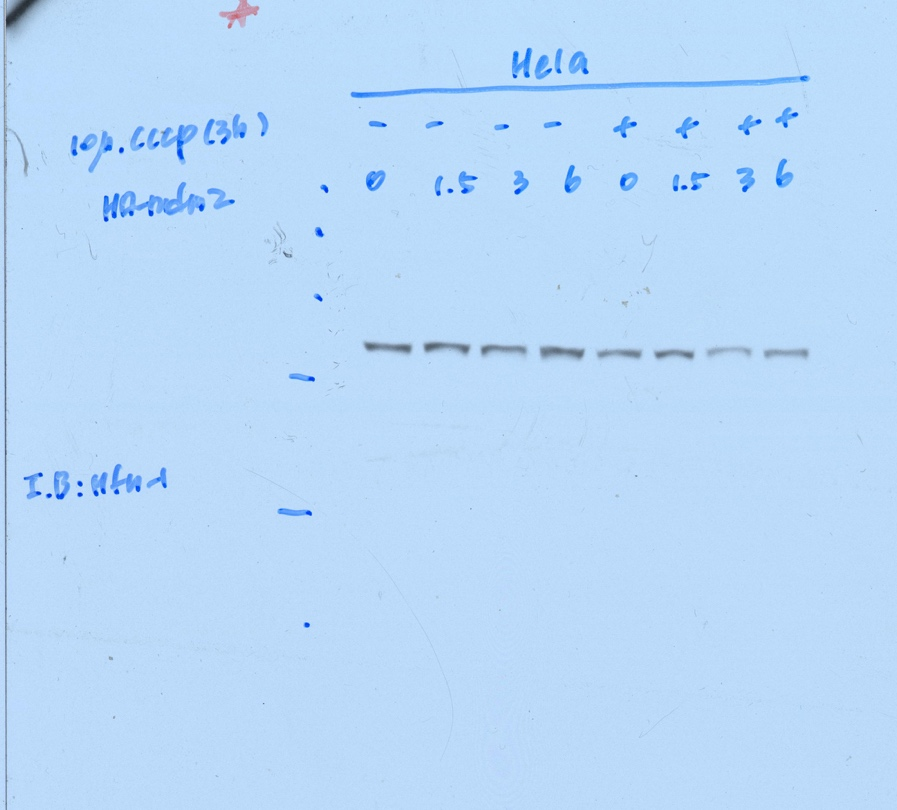 Hela
10μ. CCCp (3h) - - - - + + + +
HA-mdm2 0 1.5 3 6 0 1.5 3 6
I.B: